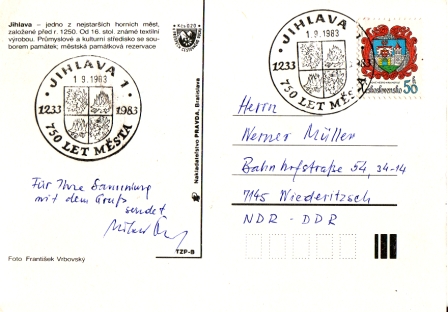 Jihlava – jedno z nejstarších horních měst,
založené před r. 1250. Od 16. stol. známé textilní
výrobou. Průmyslové a kulturní středisko se sou-
borem památek; městská památková rezervace
JIHLAVA 1
1.9.1983
1233 1983
750 LET MĚSTA
Für Ihre Sammlung
mit dem Gruß
sendet
Foto František Vrbovský
TZP-B
Nakladatelství PRAVDA, Bratislava
Kčs 0,20
JIHLAVA 1
1.9.1983
1233 1983
750 LET MĚSTA
Československo
50
Herrn
Werner Müller
Bahnhofstraße 54, 34-14
7145 Wiederitzsch
NDR - DDR